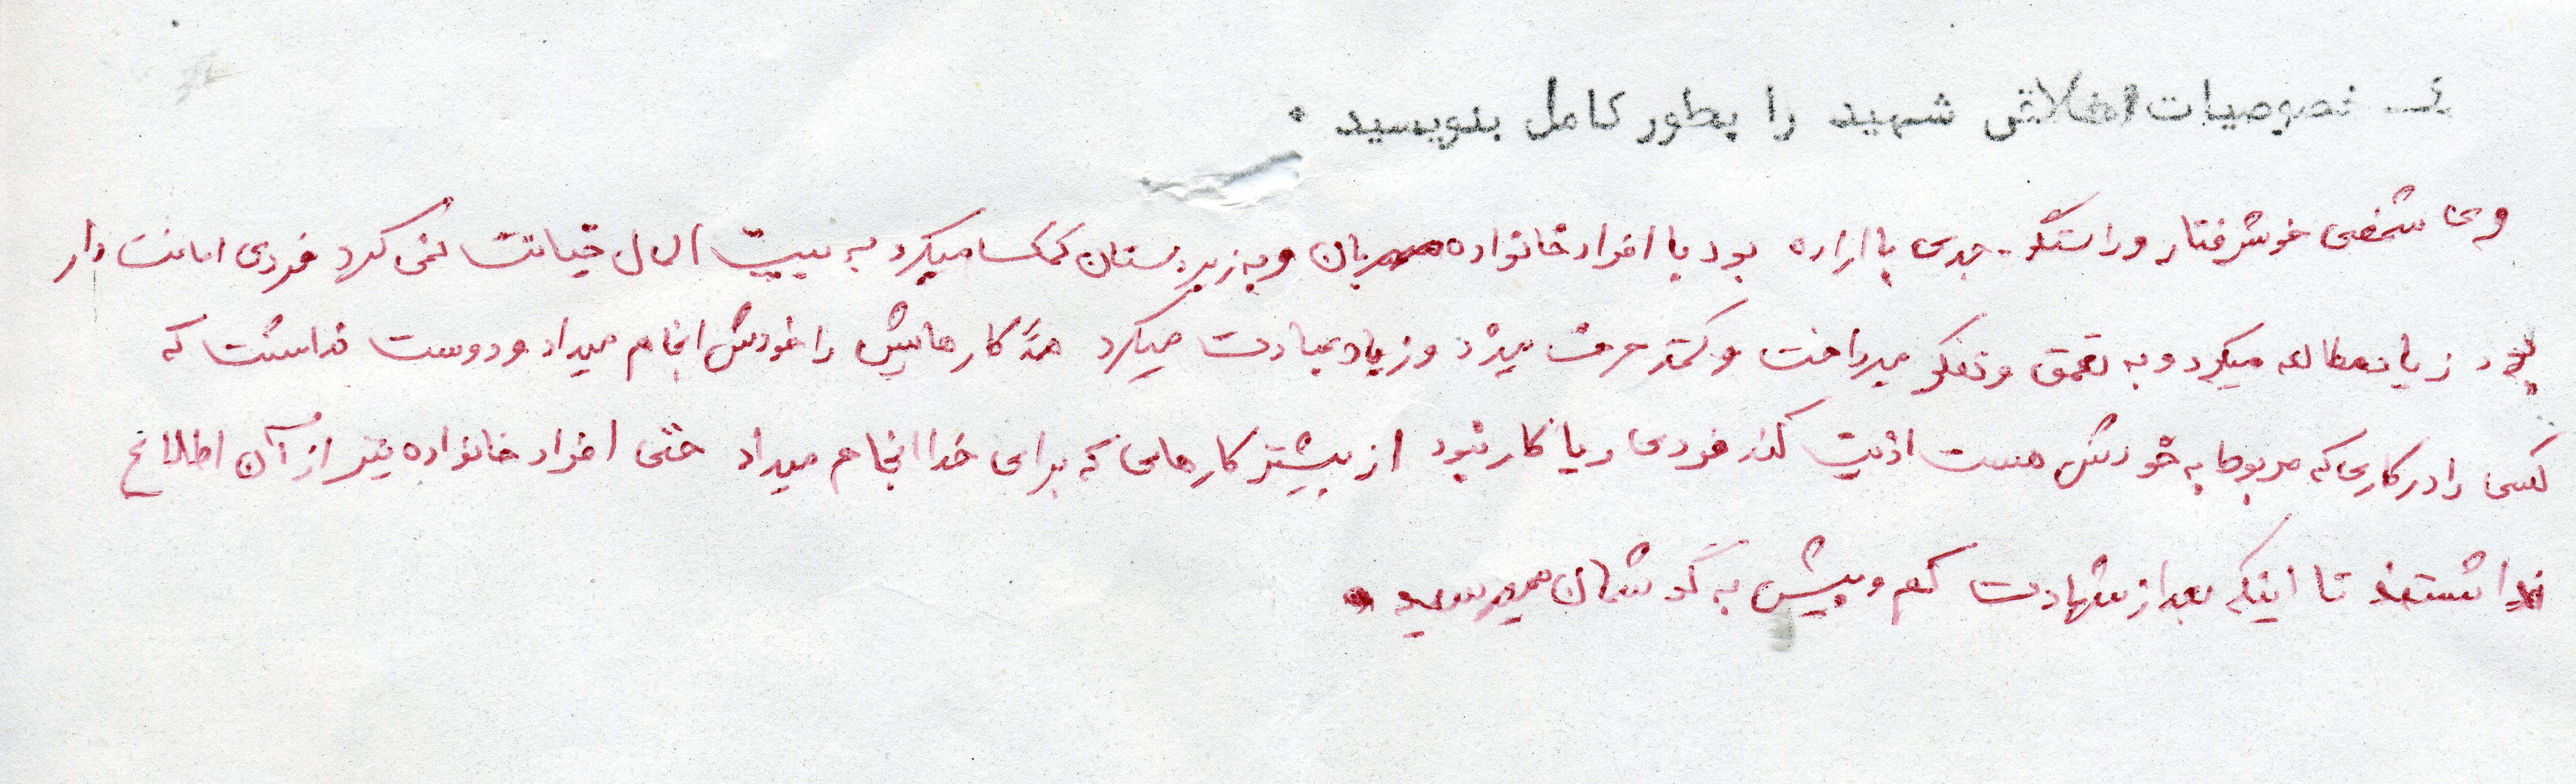 ـ خصوصیات اخلاقی شهید را بطور کامل بنویسید .
وی شخصی خوشرفتار و راستگو - جدی با اراده بود با افراد خانواده مهربان و به زیردستان کمک میکرد به بیت المال خیانت نمی کرد فردی امانت دار
بود زیاد مطالعه میکرد و به تعمق و تفکر میپرداخت و کمتر حرف میزد و زیاد عبادت میکرد همه کارهایش را خودش انجام میداد و دوست نداشت که
کسی را در کاری که مربوط به خودش هست اذیت کند فردی ریا کار نبود از بیشتر کارهایی که برای خدا انجام میداد حتی افراد خانواده نیز از آن اطلاع
نداشتند تا اینکه بعد از شهادت کم و بیش به گوششان میرسید .